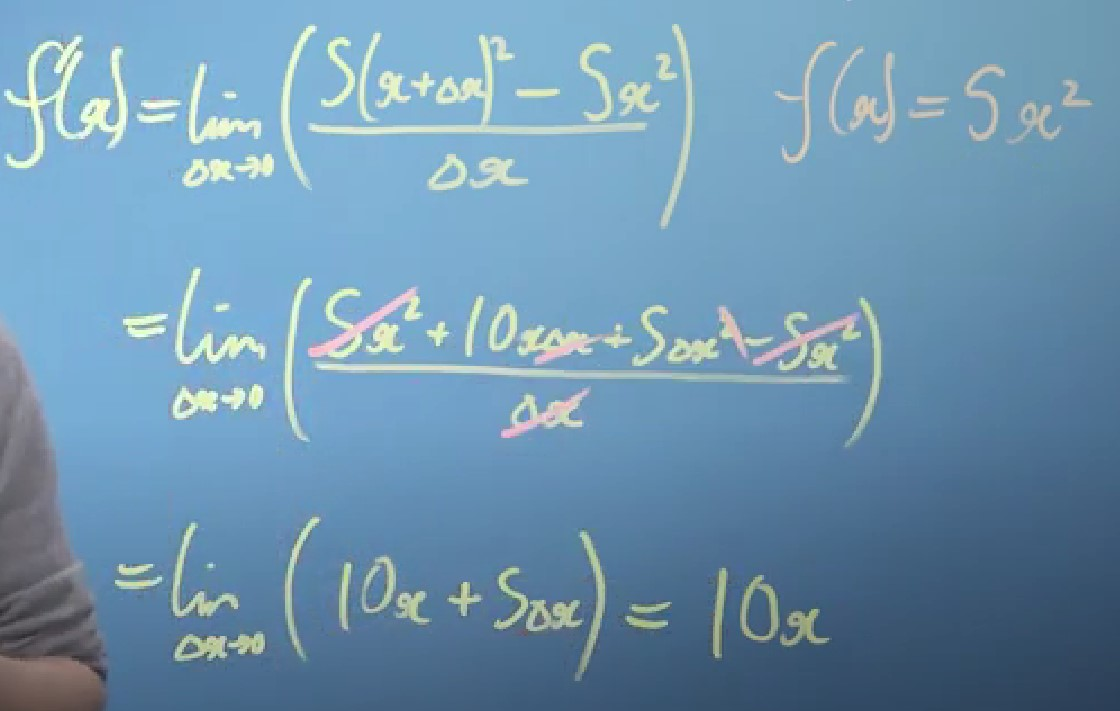 f'(x) = lim Δx→0 ( (5(x+Δx)² − 5x²) / Δx ) f(x) = 5x²
= lim Δx→0 ( (5x² + 10xΔx + 5Δx² − 5x²) / Δx )
= lim Δx→0 ( 10x + 5Δx ) = 10x